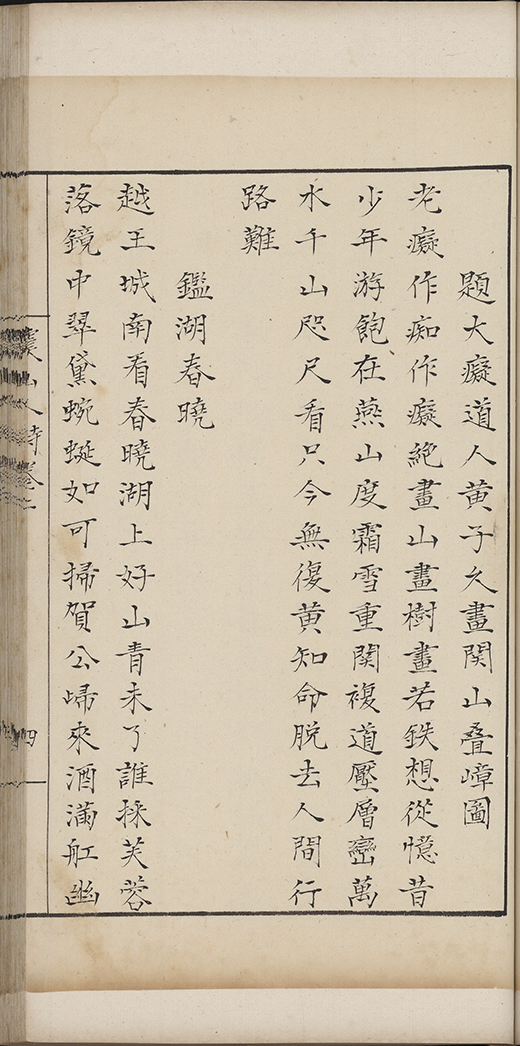 題大癡道人黃子久畫関山叠嶂圖
老癡作痴作癡絕畫山畫樹畫若鉄想從憶昔
少年游飽在燕山度霜雪重関複道壓層巒萬
水千山咫尺看只今無復黄知命脱去人間行
路難
鑑湖春曉
越王城南看春曉湖上好山青未了誰採芙蓉
落鏡中翠黛蜿蜒如可掃賀公歸來酒滿舡幽
山人詩卷二
四